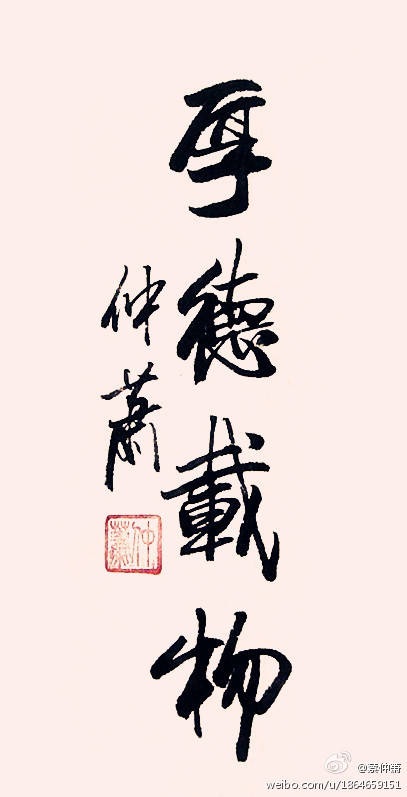 厚德載物
仲蕭
仲蕭
weibo.com/u/1864659151